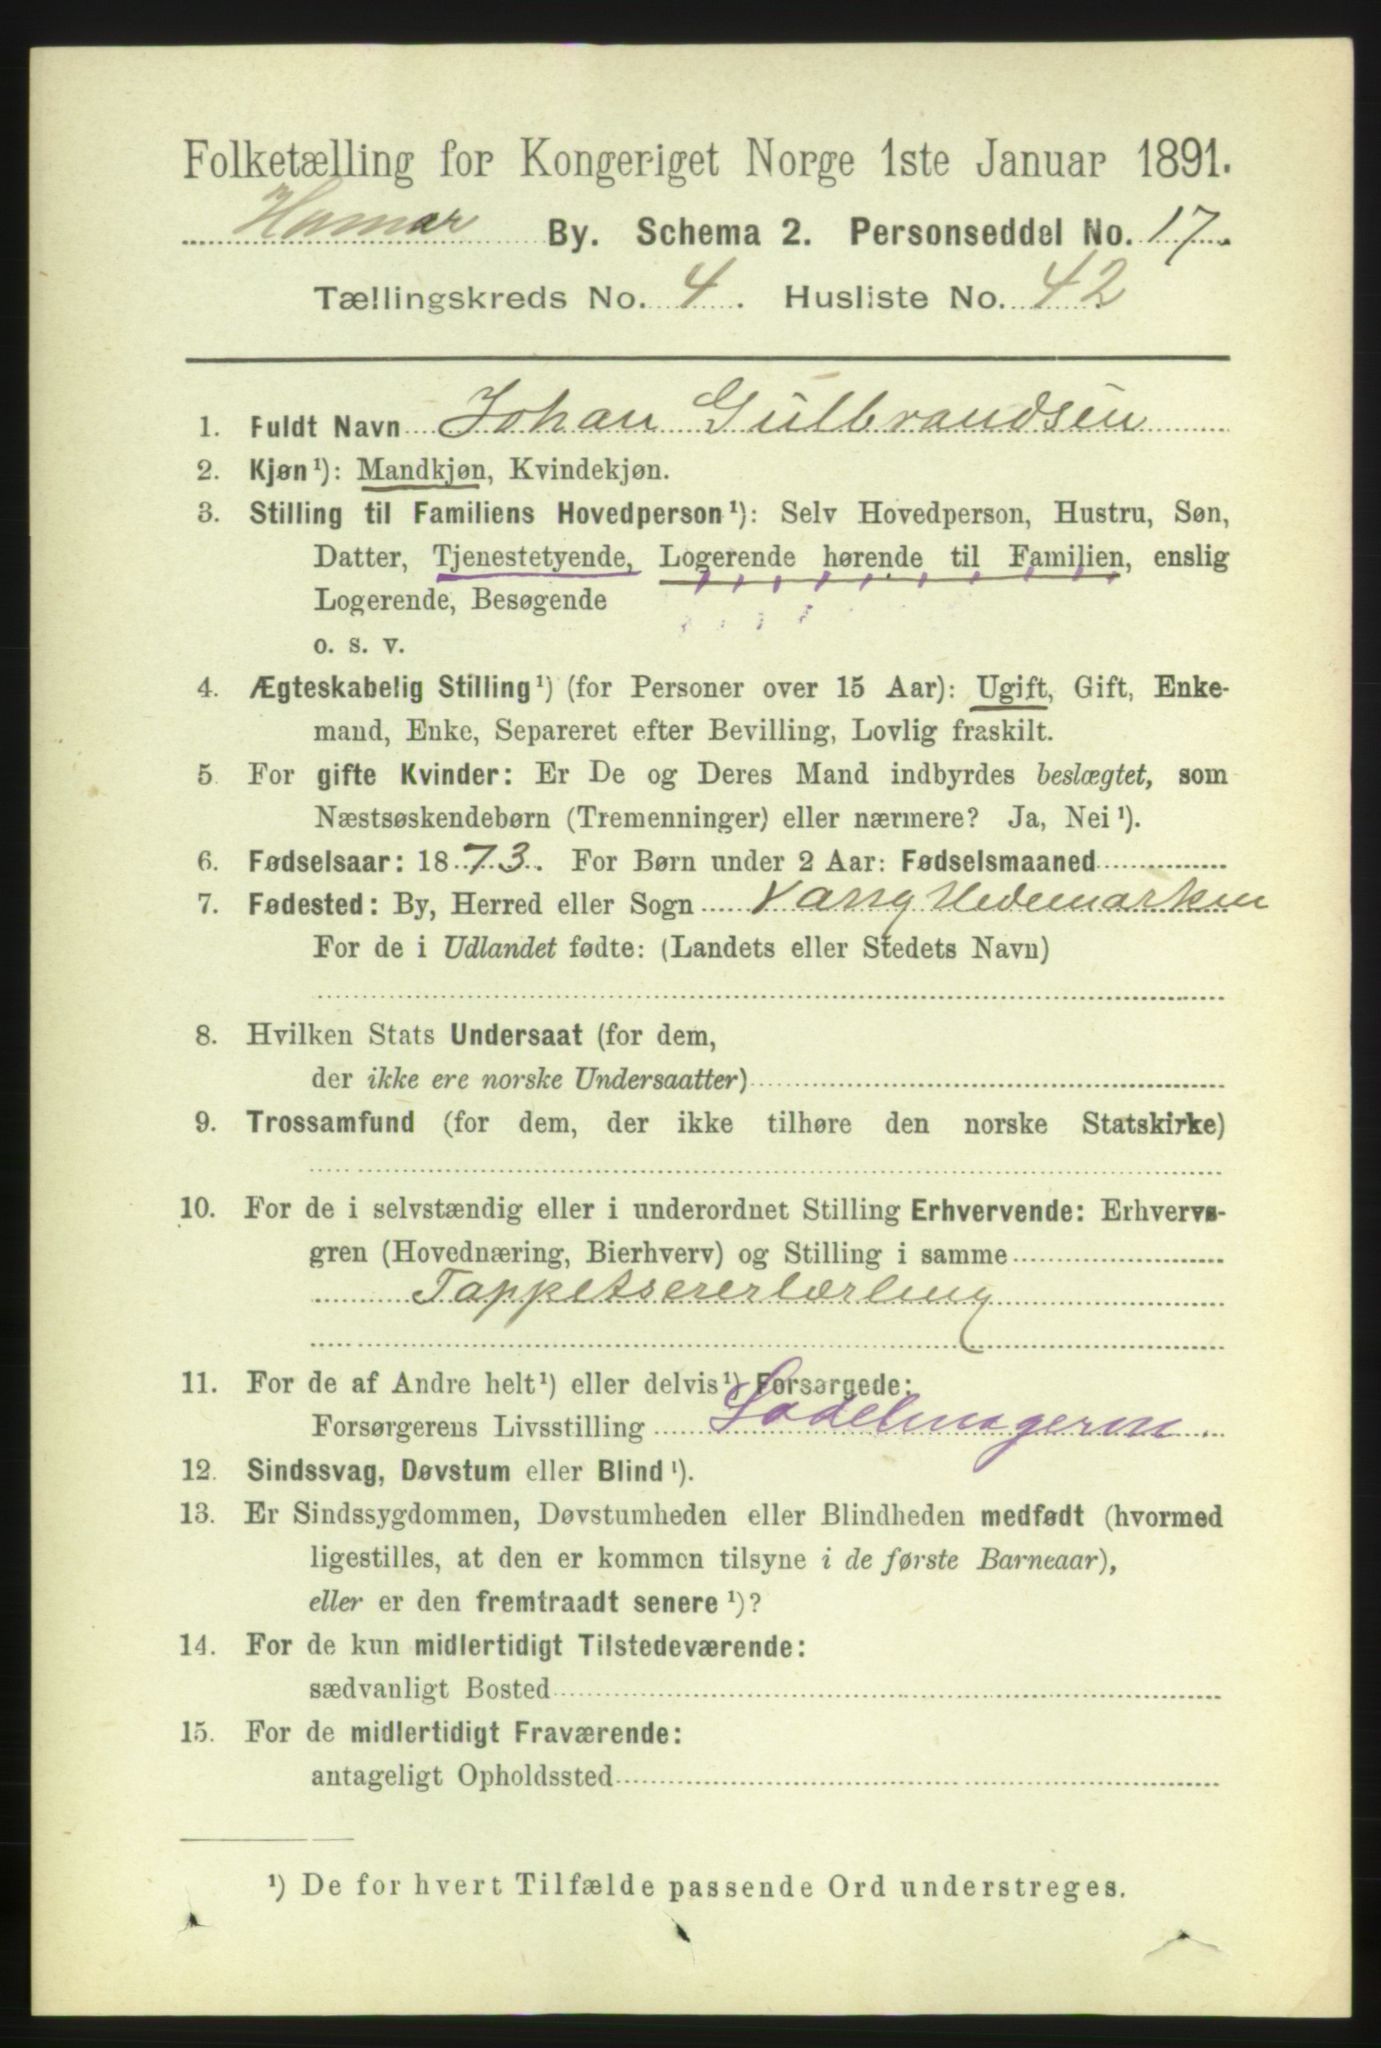 Folketælling for Kongeriget Norge 1ste Januar 1891.
Hamar By. Schema 2. Personseddel No. 17.
Tællingskreds No. 4. Husliste No. 42
1. Fuldt Navn Johan Gulbrandsen
2. Kjøn¹): Mandkjøn, Kvindekjøn.
3. Stilling til Familiens Hovedperson¹): Selv Hovedperson, Hustru, Søn,
Datter, Tjenestetyende, Logerende hørende til Familien, enslig
Logerende, Besøgende
o. s. v.
4. Ægteskabelig Stilling¹) (for Personer over 15 Aar): Ugift, Gift, Enke-
mand, Enke, Separeret efter Bevilling, Lovlig fraskilt.
5 For gifte Kvinder: Er De og Deres Mand indbyrdes beslægtet, som
Næstsøskendebørn (Tremenninger) eller nærmere? Ja, Nei¹).
6. Fødselsaar: 1873. For Børn under 2 Aar: Fødselsmaaned
7. Fødested: By, Herred eller Sogn Vang Hedemarken
For de i Udlandet fødte: (Landets eller Stedets Navn)
8. Hvilken Stats Undersaat (for dem,
der ikke ere norske Undersaatter)
9. Trossamfund (for dem, der ikke tilhøre den norske Statskirke)
10. For de i selvstændig eller i underordnet Stilling Erhvervende: Erhvervs-
gren (Hovednæring, Bierhverv) og Stilling i samme
Tappetsererlærling
11. For de af Andre helt¹) eller delvis¹) Forsørgede:
Forsørgerens Livsstilling Sadelmagerm.
12. Sindssvag, Døvstum eller Blind¹).
13. Er Sindssygdommen, Døvstumheden eller Blindheden medfødt (hvormed
ligestilles, at den er kommen tilsyne i de første Barneaar),
eller er den fremtraadt senere¹)?
14. For de kun midlertidigt Tilstedeværende:
sædvanligt Bosted
15. For de midlertidigt Fraværende:
antageligt Opholdssted
¹) De for hvert Tilfælde passende Ord understreges.